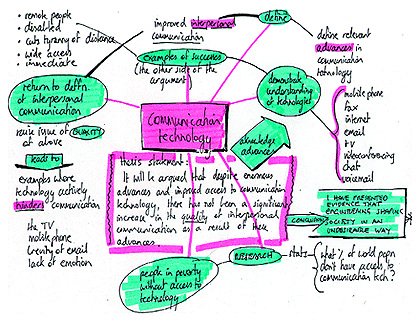 • remote people
• disabled
• cuts tyranny of distance
• wide access
• immediate
improved interpersonal
communication
define
define relevant
advances in
communication
technology
examples of success
(the other side of the
argument)
return to defn.
of interpersonal
communication
raise issue of QUALITY
of above
leads to
examples where
technology actively
hinders communication
the TV
mobile phone
brevity of email
lack of emotion
Communication
technology
demonstrate
understanding
of technologies
mobile phone
fax
internet
email
TV
videoconferencing
chat
voicemail
acknowledge
advances
thesis statement:
It will be argued that despite enormous
advances and improved access to communication
technology, there has not been a significant
increase in the quality of interpersonal
communication as a result of these
advances.
CONCLUSION
I HAVE PRESENTED
EVIDENCE THAT
ENGINEERING SHAPING
SOCIETY IN AN
UNDESIRABLE WAY
people in poverty
without access to
technology
RESEARCH
stats
what % of world popn
don't have access to
communication tech?